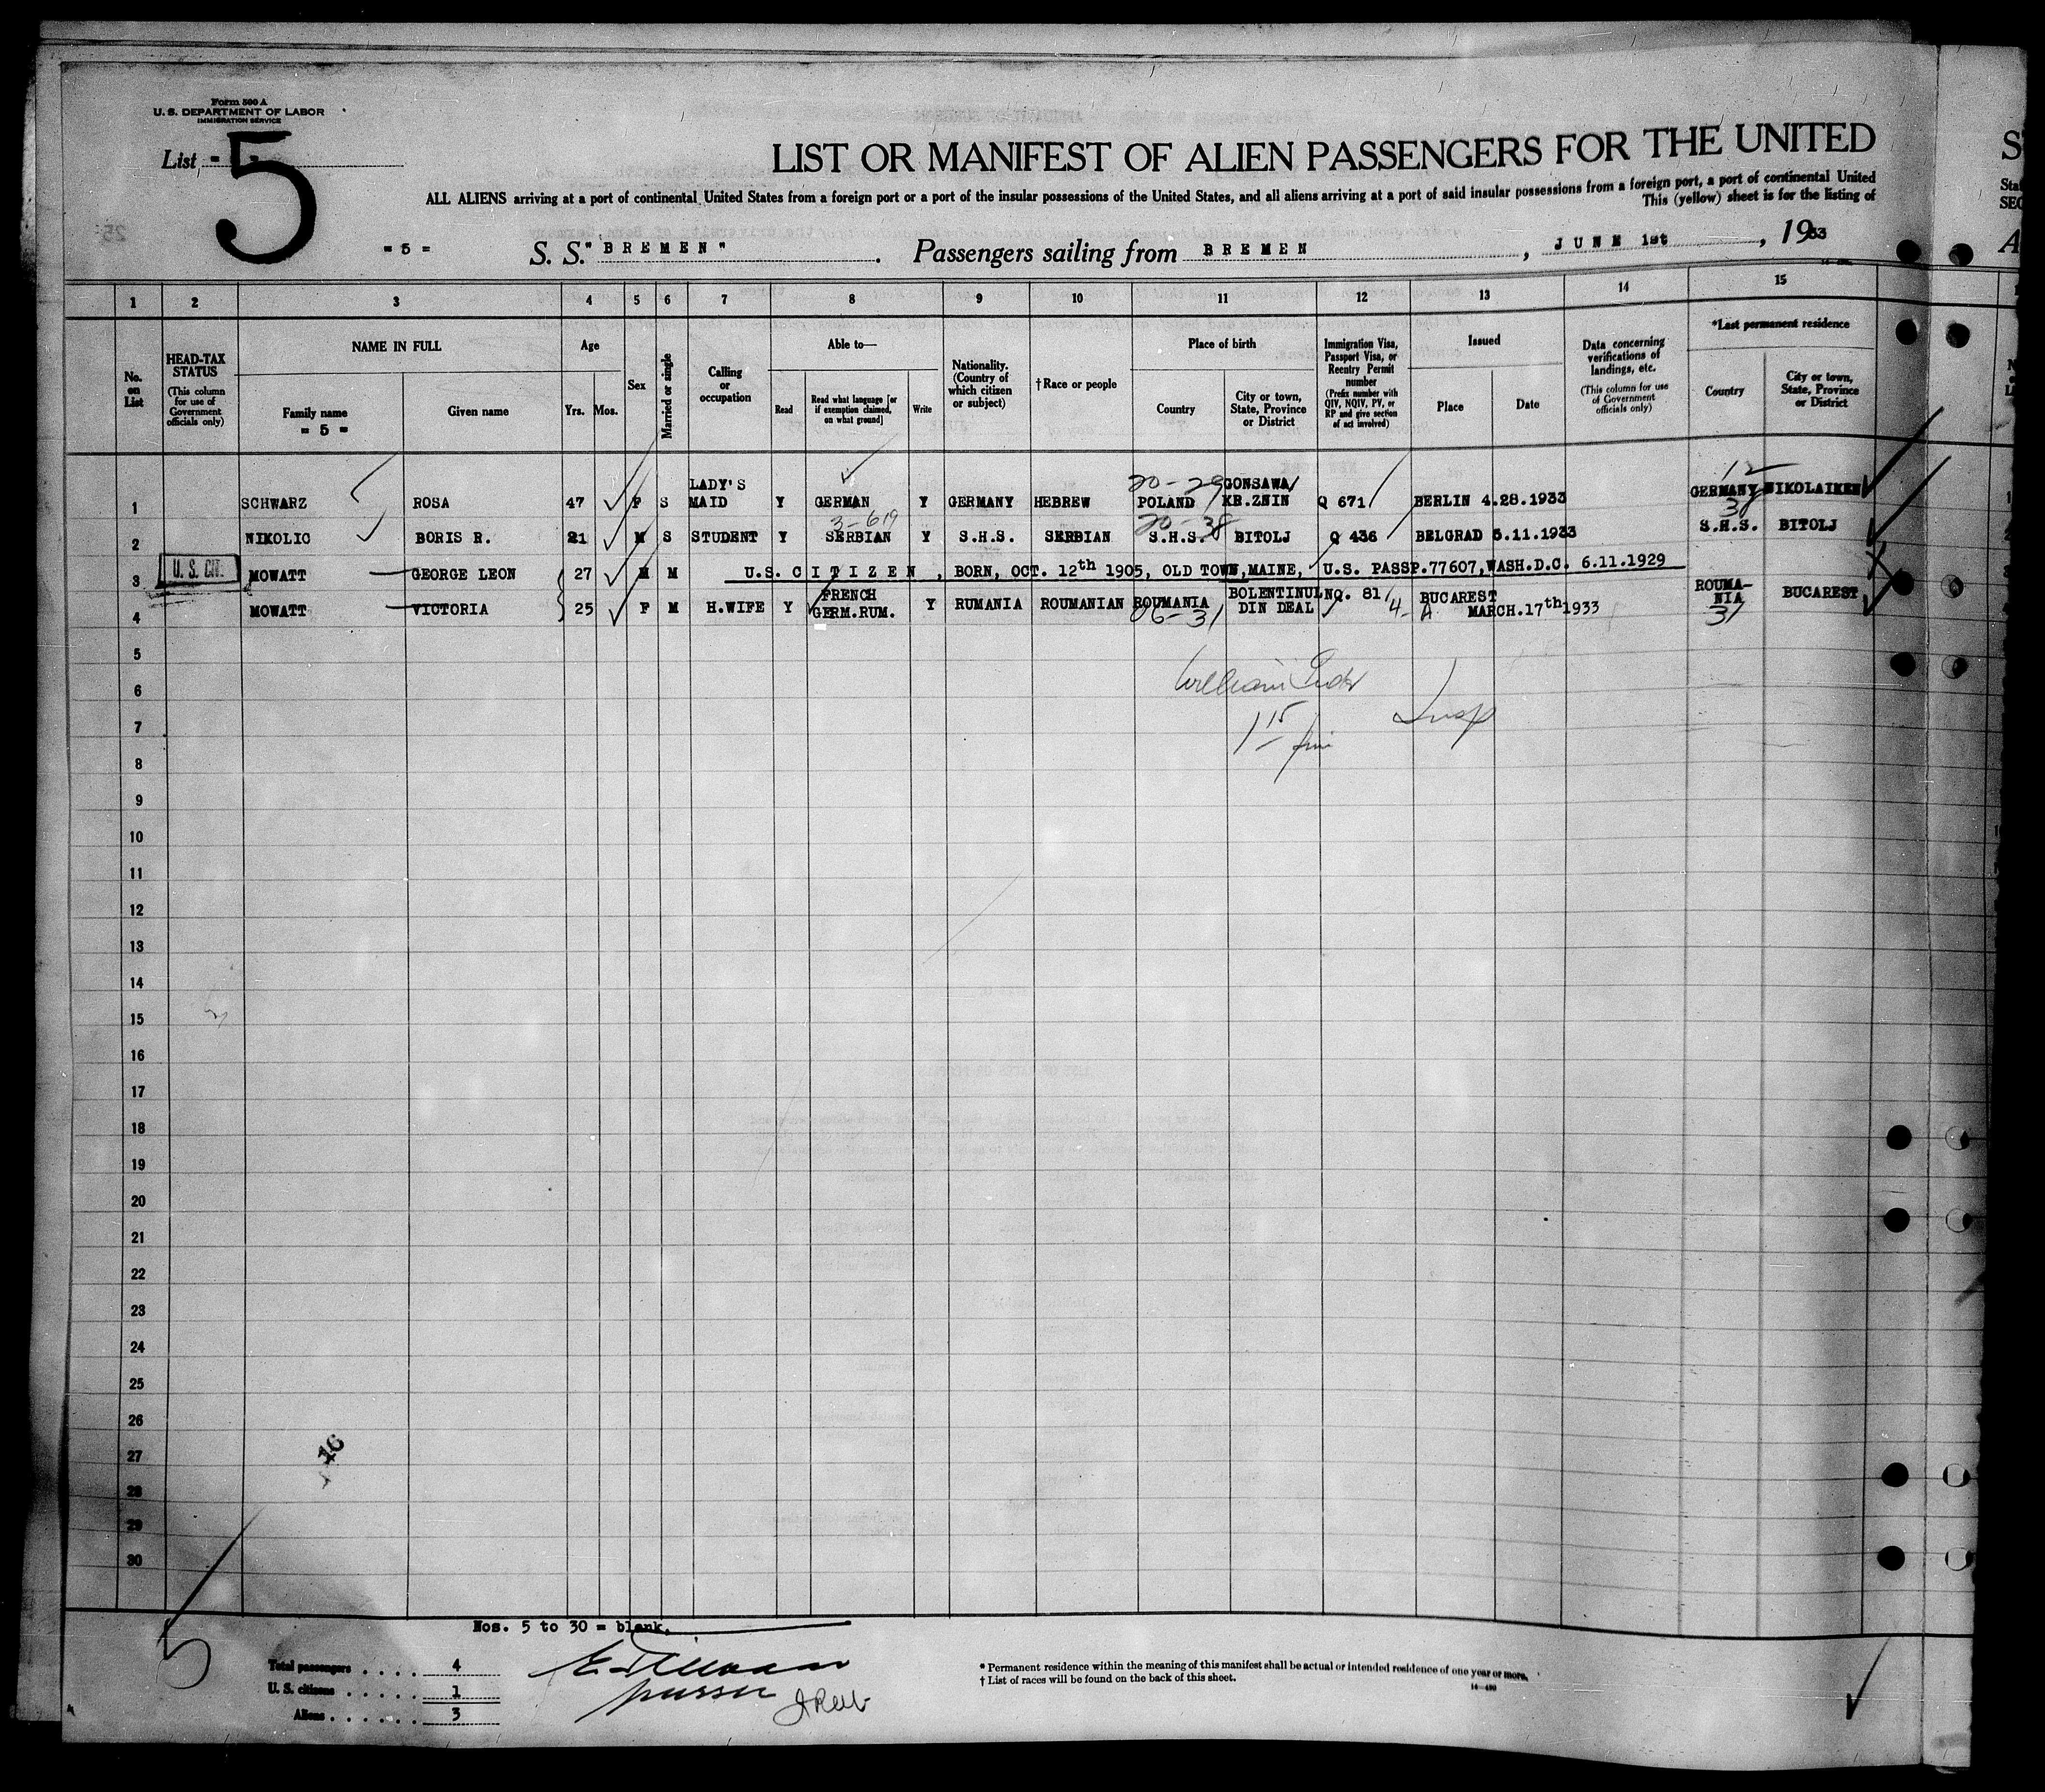 Form 500 A
U. S. DEPARTMENT OF LABOR
IMMIGRATION SERVICE
List - 5 -
5
LIST OR MANIFEST OF ALIEN PASSENGERS FOR THE UNITED
ALL ALIENS arriving at a port of continental United States from a foreign port or a port of the insular possessions of the United States, and all aliens arriving at a port of said insular possessions from a foreign port, a port of continental United
This (yellow) sheet is for the listing of
= 5 = S. S. "BREMEN". Passengers sailing from BREMEN, JUNE 1st, 1933
1 2 3 4 5 6 7 8 9 10 11 12 13 14 15
No. on List
HEAD-TAX STATUS (This column for use of Government officials only)
NAME IN FULL
Family name
= 5 =
Given name
Age
Yrs. Mos.
Sex
Married or single
Calling or occupation
Able to—
Read
Read what language [or if exemption claimed, on what ground]
Write
Nationality. (Country of which citizen or subject)
† Race or people
Place of birth
Country
City or town, State, Province or District
Immigration Visa, Passport Visa, or Reentry Permit number (Prefix number with QIV, NQIV, PV, or RP and give section of act involved)
Issued
Place
Date
Data concerning verifications of landings, etc. (This column for use of Government officials only)
*Last permanent residence
Country
City or town, State, Province or District
20-29 12
1 SCHWARZ ROSA 47 F S LADY'S MAID Y GERMAN Y GERMANY HEBREW POLAND GONSAWA KR.ZNIN Q 671 BERLIN 4.28.1933 GERMANY NIKOLAIKEN
3-619 20-38 38
2 NIKOLIC BORIS R. 21 M S STUDENT Y SERBIAN Y S.H.S. SERBIAN S.H.S. BITOLJ Q 436 BELGRAD 5.11.1933 S.H.S. BITOLJ
3 U. S. CIT. MOWATT GEORGE LEON 27 M M U.S. CITIZEN, BORN, OCT. 12th 1905, OLD TOWN, MAINE, U.S. PASSP.77607, WASH.D.C. 6.11.1929
4 MOWATT VICTORIA 25 F M H.WIFE Y FRENCH GERM.RUM. Y RUMANIA ROUMANIAN ROUMANIA BOLENTINUL DIN DEAL NO. 81 BUCAREST MARCH.17th 1933 ROUMANIA BUCAREST
06-31 4-A 31
William
Insp
5
6
7
8
9
10
11
12
13
14
15
16
17
18
19
20
21
22
23
24
25
26
27
28
29
30
16
Nos. 5 to 30 = blank.
Total passengers . . . . 4
U. S. citizens . . . . . 1
Aliens . . . . . . 3
purser
* Permanent residence within the meaning of this manifest shall be actual or intended residence of one year or more.
† List of races will be found on the back of this sheet.
14—490
5